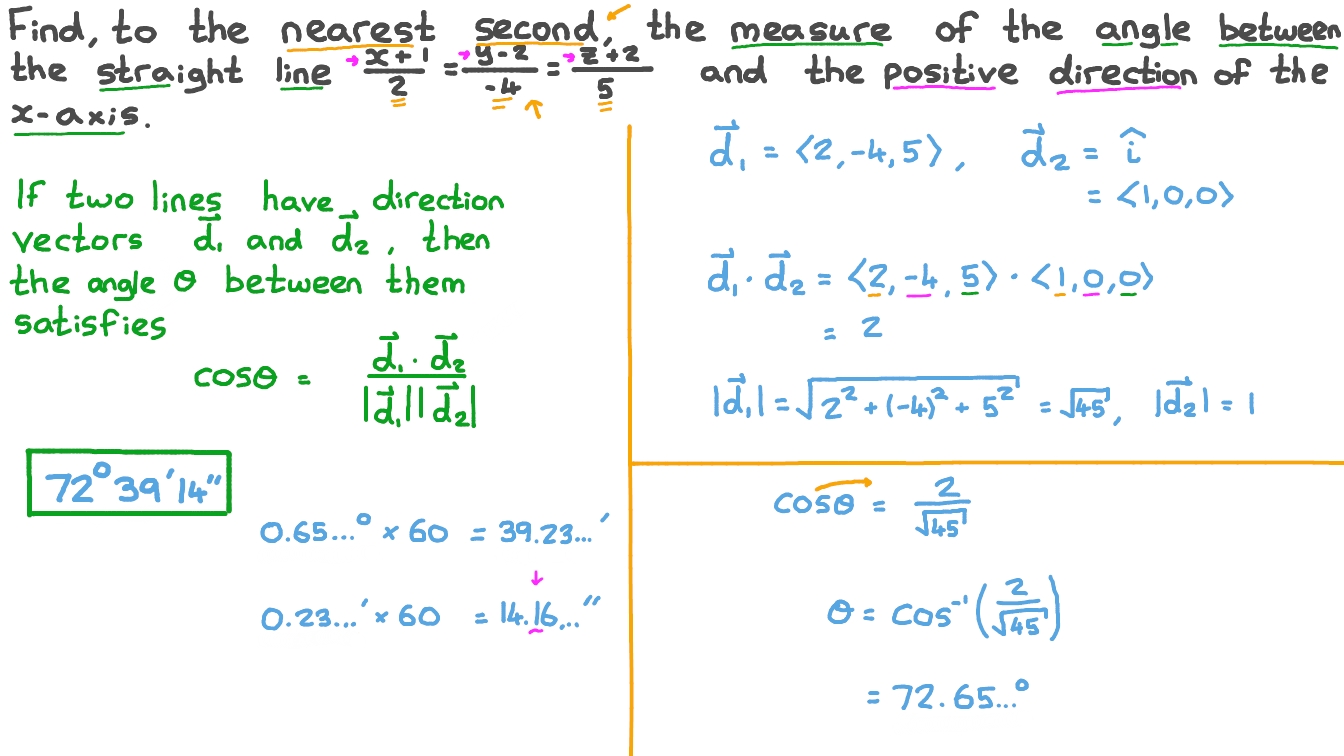 Find, to the nearest second, the measure of the angle between
the straight line x+1/2 = y-2/-4 = z+2/5 and the positive direction of the
x-axis.
If two lines have direction
vectors d⃗₁ and d⃗₂, then
the angle θ between them
satisfies
cosθ = d⃗₁ · d⃗₂ / |d⃗₁||d⃗₂|
72°39′14″
0.65...° × 60 = 39.23...′
0.23...′ × 60 = 14.16...″
d⃗₁ = ⟨2,-4,5⟩, d⃗₂ = î
= ⟨1,0,0⟩
d⃗₁ · d⃗₂ = ⟨2,-4,5⟩ · ⟨1,0,0⟩
= 2
|d⃗₁| = √(2² + (-4)² + 5²) = √45, |d⃗₂| = 1
cosθ = 2/√45
θ = cos⁻¹(2/√45)
= 72.65...°